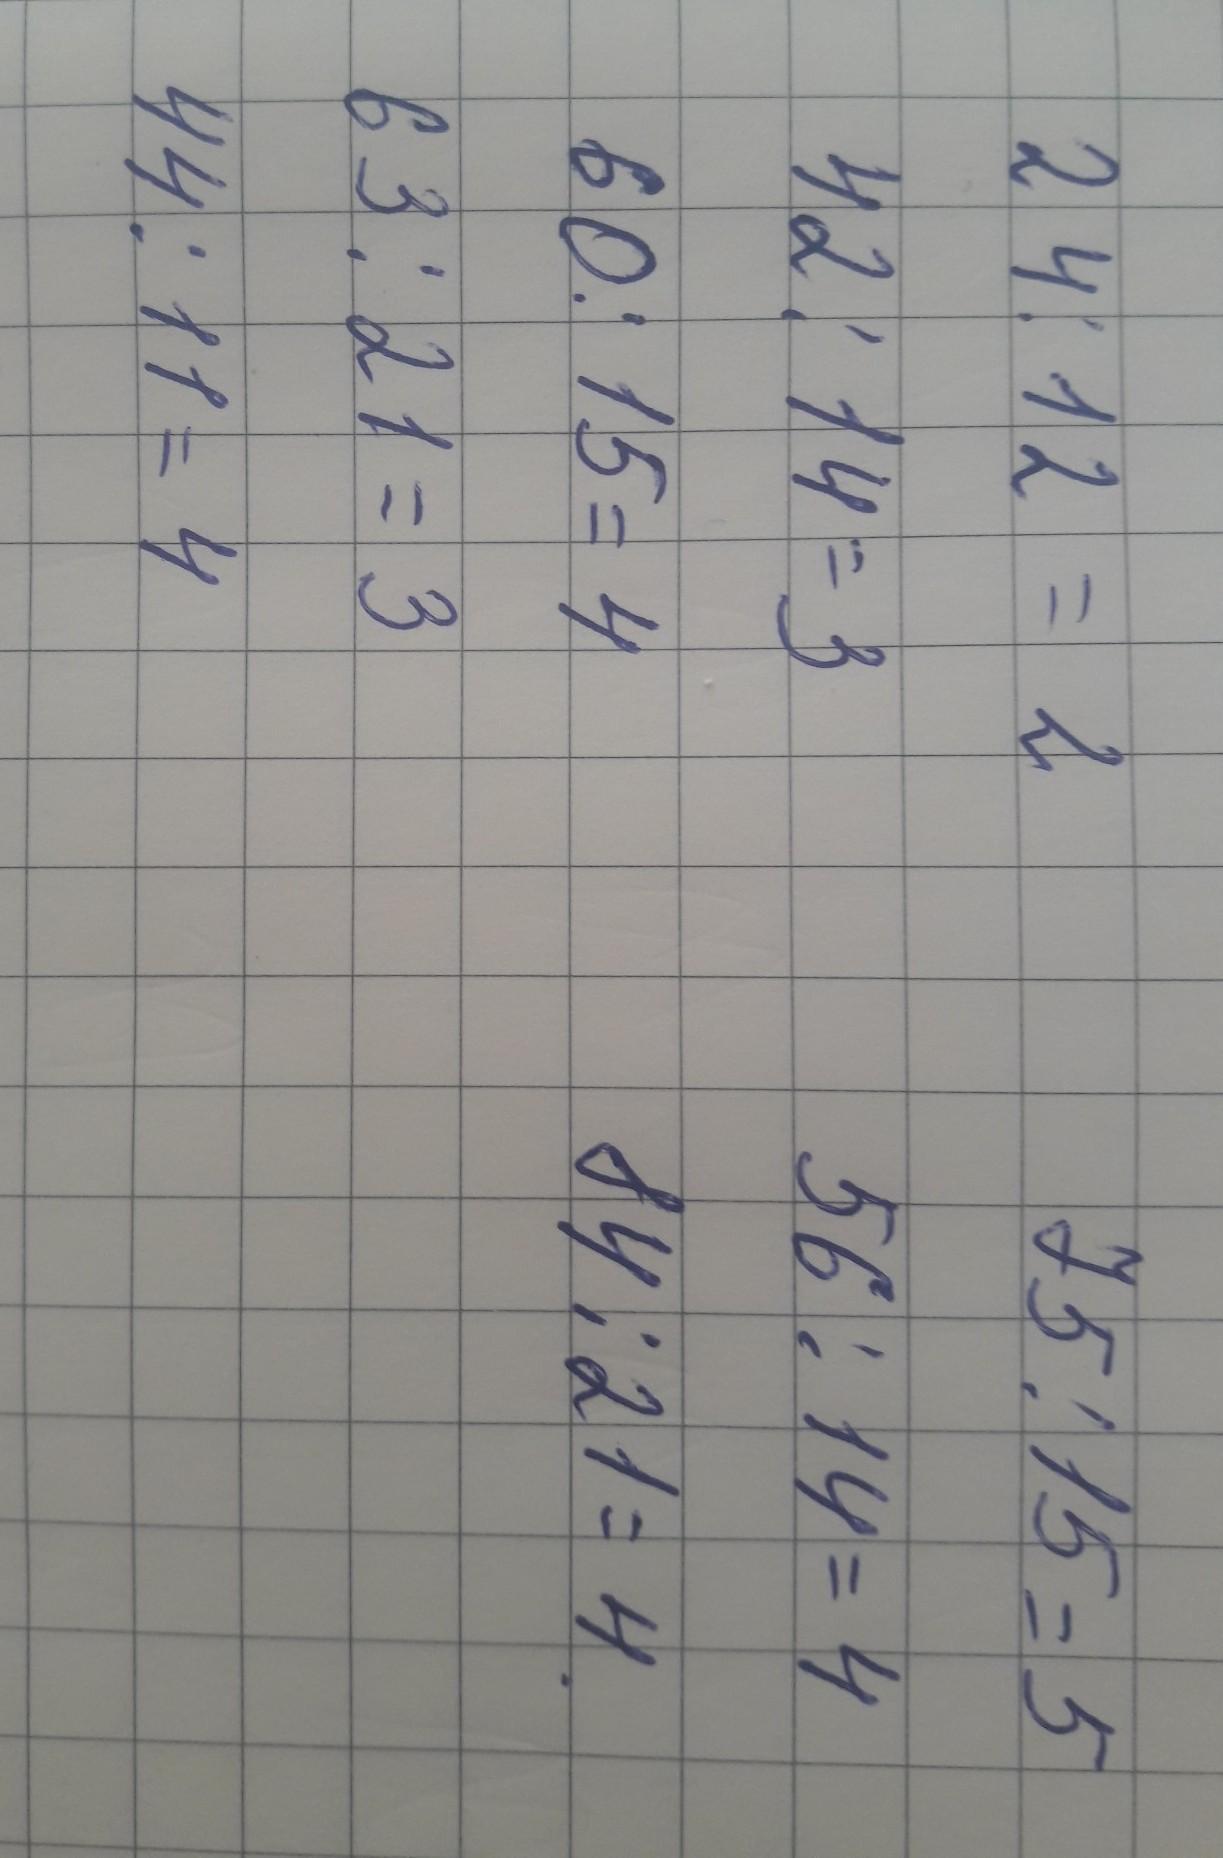 24:12=2
42:14=3
60:15=4
63:21=3
44:11=4
75:15=5
56:14=4
84:21=4.